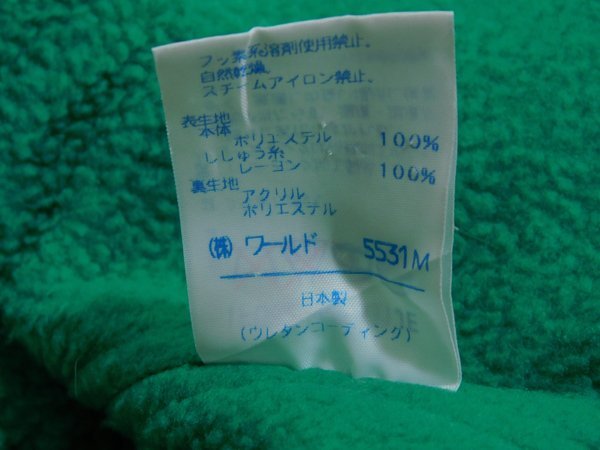 フッ素系溶剤使用禁止。
自然乾燥。
スチームアイロン禁止。
表生地
本体
ポリエステル 100%
ししゅう糸
レーヨン 100%
裏生地
アクリル
ポリエステル
(株) ワールド 5531M
日本製
(ウレタンコーティング)